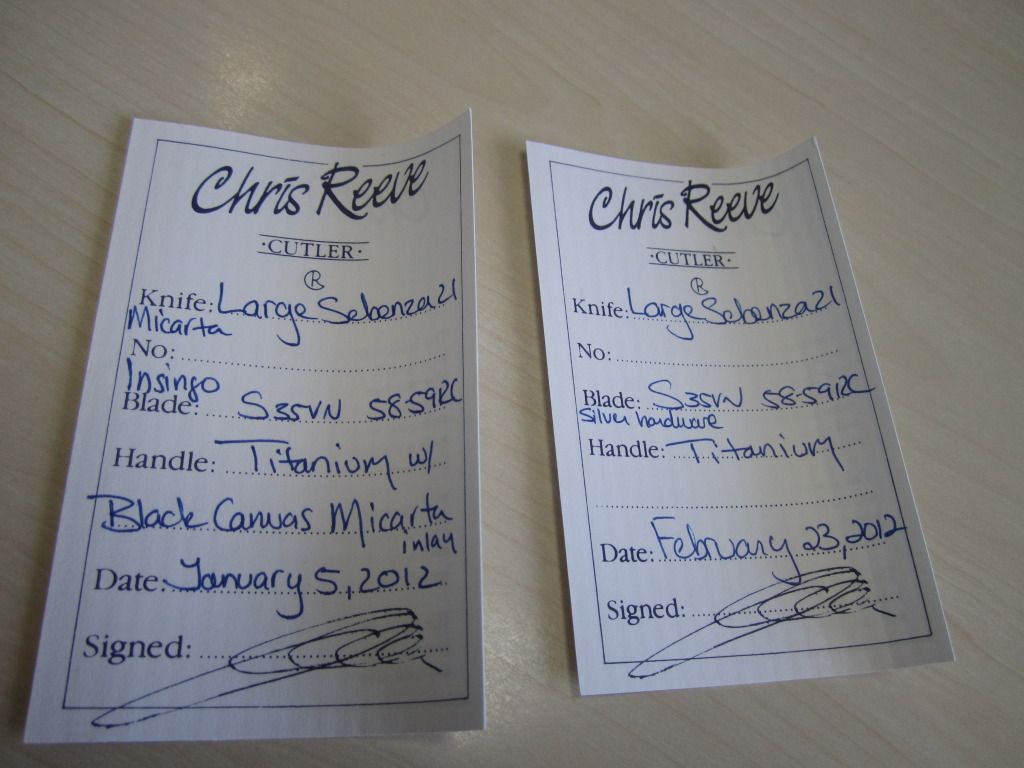 Chris Reeve
·CUTLER·
R
Knife: Large Sebenza 21
Micarta
No:
Insingo
Blade: S35VN 58-59RC
Handle: Titanium w/
Black Canvas Micarta
inlay
Date: January 5, 2012
Signed:
Chris Reeve
·CUTLER·
R
Knife: Large Sebenza 21
No:
Blade: S35VN 58-59RC
Silver hardware
Handle: Titanium
Date: February 23, 2012
Signed: